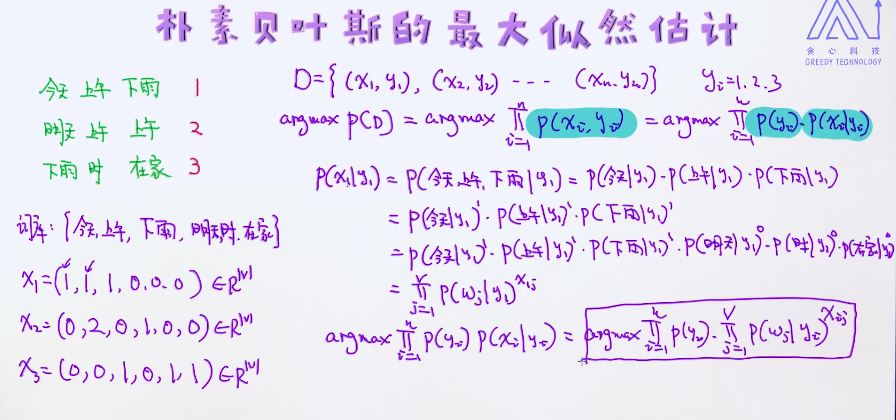 朴素贝叶斯的最大似然估计
贪心科技
GREEDY TECHNOLOGY
今天 上午 下雨 1
明天 上午 上午 2
下雨 时 在家 3
词库：{今天,上午,下雨,明天,时,在家}
x₁=(1,1,1,0,0,0)∈R^|V|
x₂=(0,2,0,1,0,0)∈R^|V|
x₃=(0,0,1,0,1,1)∈R^|V|
D={(x₁,y₁),(x₂,y₂)---(xn,yn)} yᵢ=1.2.3
argmax p(D) = argmax ∏ᵢ₌₁ⁿ p(xᵢ,yᵢ) = argmax ∏ᵢ₌₁ⁿ p(yᵢ)·p(xᵢ|yᵢ)
p(x₁|y₁) = p(今天,上午,下雨|y₁) = p(今天|y₁)·p(上午|y₁)·p(下雨|y₁)
= p(今天|y₁)¹·p(上午|y₁)¹·p(下雨|y₁)¹
= p(今天|y₁)¹·p(上午|y₁)¹·p(下雨|y₁)¹·p(明天|y₁)⁰·p(时|y₁)⁰·p(在家|y₁)⁰
= ∏ⱼ₌₁ⱽ p(wⱼ|y₁)^x₁ⱼ
argmax ∏ᵢ₌₁ⁿ p(yᵢ) p(xᵢ|yᵢ) = argmax ∏ᵢ₌₁ⁿ p(yᵢ)·∏ⱼ₌₁ⱽ p(wⱼ|yᵢ)^xᵢⱼ